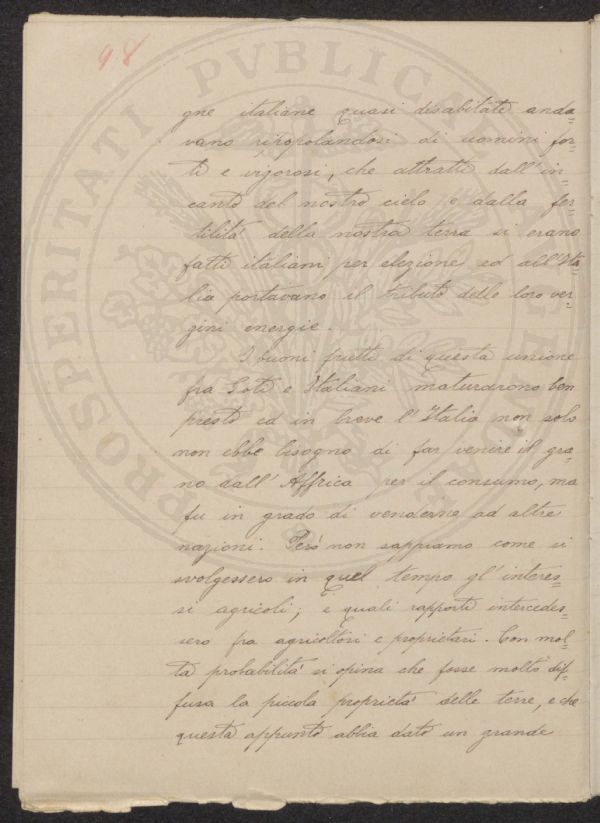 98
gne italiane quasi disabitate anda=
vano ripopolandosi di uomini for=
ti e vigorosi, che attratti dall'in=
canto del nostro cielo e dalla fer=
tilità della nostra terra si erano
fatti italiani per elezione ed all'Ita=
lia portavano il tributo delle loro ver=
gini energie.
I buoni frutti di questa unione
fra Goti e Italiani maturarono ben
presto ed in breve l'Italia non solo
non ebbe bisogno di far venire il gra=
no dall'Affrica per il consumo, ma
fu in grado di venderne ad altre
nazioni. Però non sappiamo come si
svolgessero in quel tempo gl'interes=
si agricoli; e quali rapporti intercedes=
sero fra agricoltori e proprietari. Con mol=
ta probabilità si opina che fosse molto dif=
fusa la piccola proprietà delle terre, e che
questa appunto abbia dato un grande
PROSPERITATI PVBLICAE